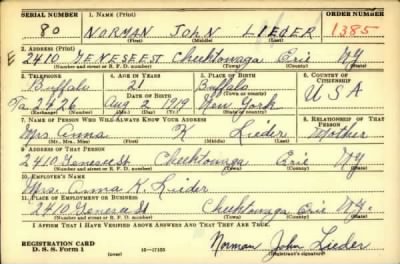 SERIAL NUMBER 1. NAME (Print) ORDER NUMBER
80 NORMAN JOHN LIEDER 1385
(First) (Middle) (Last)
2. ADDRESS (Print)
2410 GENESEE ST Cheektowaga Erie NY
(Number and street or R. F. D. number) (Town) (County) (State)
3. TELEPHONE 4. AGE IN YEARS 5. PLACE OF BIRTH 6. COUNTRY OF CITIZENSHIP
Buffalo 21 Buffalo
DATE OF BIRTH (Town or county)
2426 Aug 2 1919 New York U S A
(Exchange) (Number) (Mo.) (Day) (Yr.) (State or country)
7. NAME OF PERSON WHO WILL ALWAYS KNOW YOUR ADDRESS 8. RELATIONSHIP OF THAT PERSON
Mrs. Anna K Lieder Mother
(Mr., Mrs., Miss) (First) (Middle) (Last)
9. ADDRESS OF THAT PERSON
2410 Genesee St Cheektowaga Erie NY
(Number and street or R. F. D. number) (Town) (County) (State)
10. EMPLOYER'S NAME
Mrs. Anna K. Lieder
11. PLACE OF EMPLOYMENT OR BUSINESS
2410 Genesee St Cheektowaga Erie NY.
(Number and street or R. F. D. number) (Town) (County) (State)
I AFFIRM THAT I HAVE VERIFIED ABOVE ANSWERS AND THAT THEY ARE TRUE.
REGISTRATION CARD
D. S. S. Form 1 (over)
Norman John Lieder
(Registrant's signature)